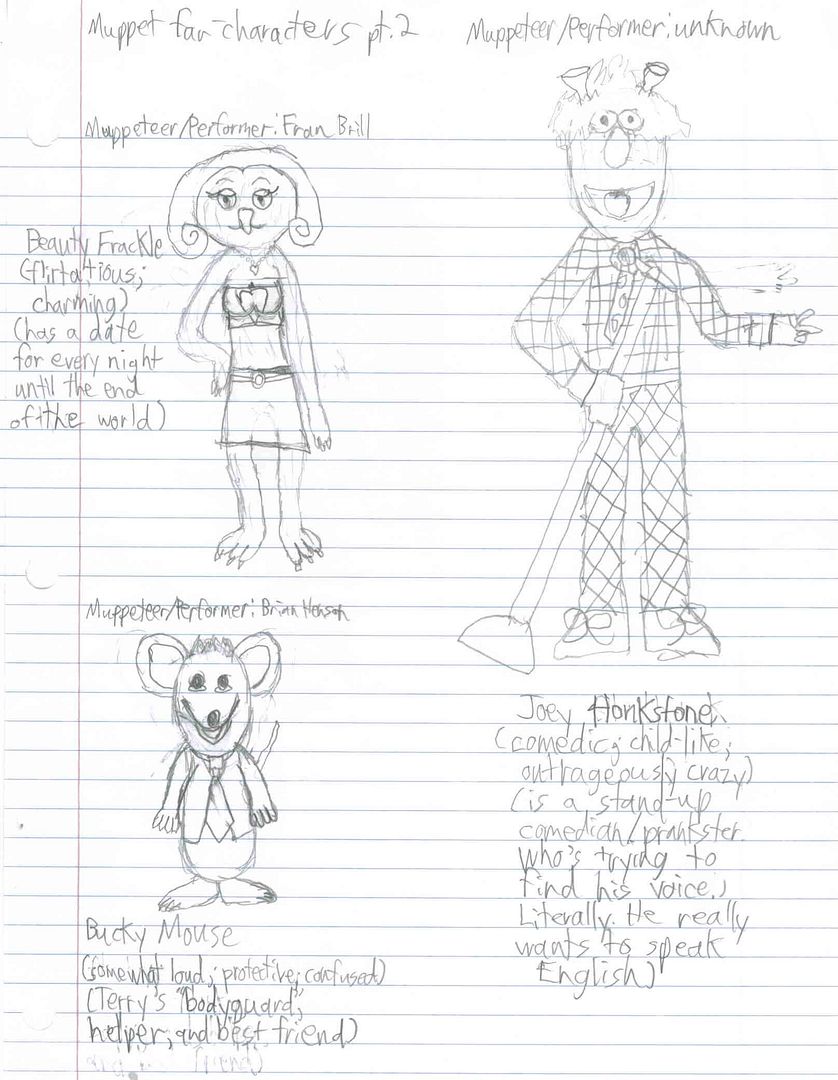 Muppet fan-characters pt.2
Muppeteer/Performer: unknown
Muppeteer/Performer: Fran Brill
Beauty Frackle
(flirtatious;
charming)
(has a date
for every night
until the end
of the world)
Muppeteer/Performer: Brian Henson
Bucky Mouse
(somewhat loud; protective; confused)
(Terry's "bodyguard",
helper, and best friend)
friend)
Joey Honkstone
(comedic; child-like;
outrageously crazy)
(is a stand-up
comedian/prankster
who's trying to
find his voice.
Literally. He really
wants to speak
English)